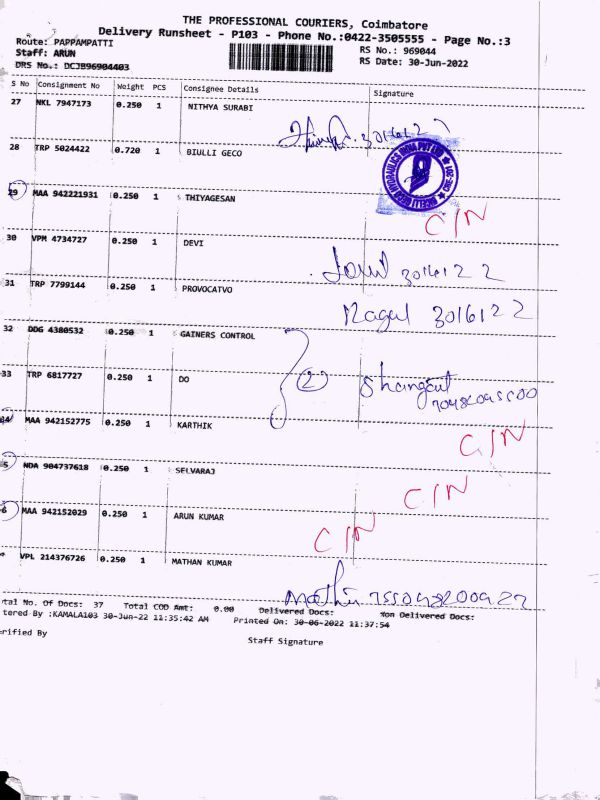 THE PROFESSIONAL COURIERS, Coimbatore
Delivery Runsheet - P103 - Phone No.:0422-3505555 - Page No.:3
Route: PAPPAMPATTI
RS No.: 969044
Staff: ARUN
RS Date: 30-Jun-2022
DRS No.: DCJB96904403
S No Consignment No Weight PCS Consignee Details Signature
27 NKL 7947173 0.250 1 NITHYA SURABI
301612
28 TRP 5024422 0.720 1 BIULLI GECO
29 MAA 942221931 0.250 1 THIYAGESAN
C/N
30 VPM 4734727 0.250 1 DEVI
30161 2 2
31 TRP 7799144 0.250 1 PROVOCATVO
Nagal 3016122
32 DDG 4380532 0.250 1 GAINERS CONTROL
33 TRP 6817727 0.250 1 DO
2
34 MAA 942152775 0.250 1 KARTHIK
C/N
5 NDA 904737618 0.250 1 SELVARAJ
C/N
6 MAA 942152029 0.250 1 ARUN KUMAR
C/N
VPL 214376726 0.250 1 MATHAN KUMAR
tal No. Of Docs: 37 Total COD Amt: 0.00 Delivered Docs: Non Delivered Docs:
tered By :KAMALA103 30-Jun-22 11:35:42 AM Printed On: 30-06-2022 11:37:54
erified By
Staff Signature